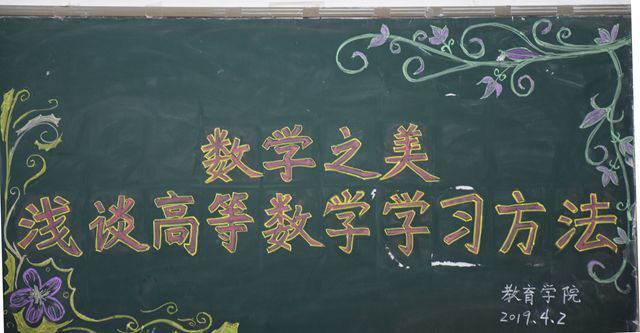 数学之美
浅谈高等数学学习方法
教育学院
2019.4.2